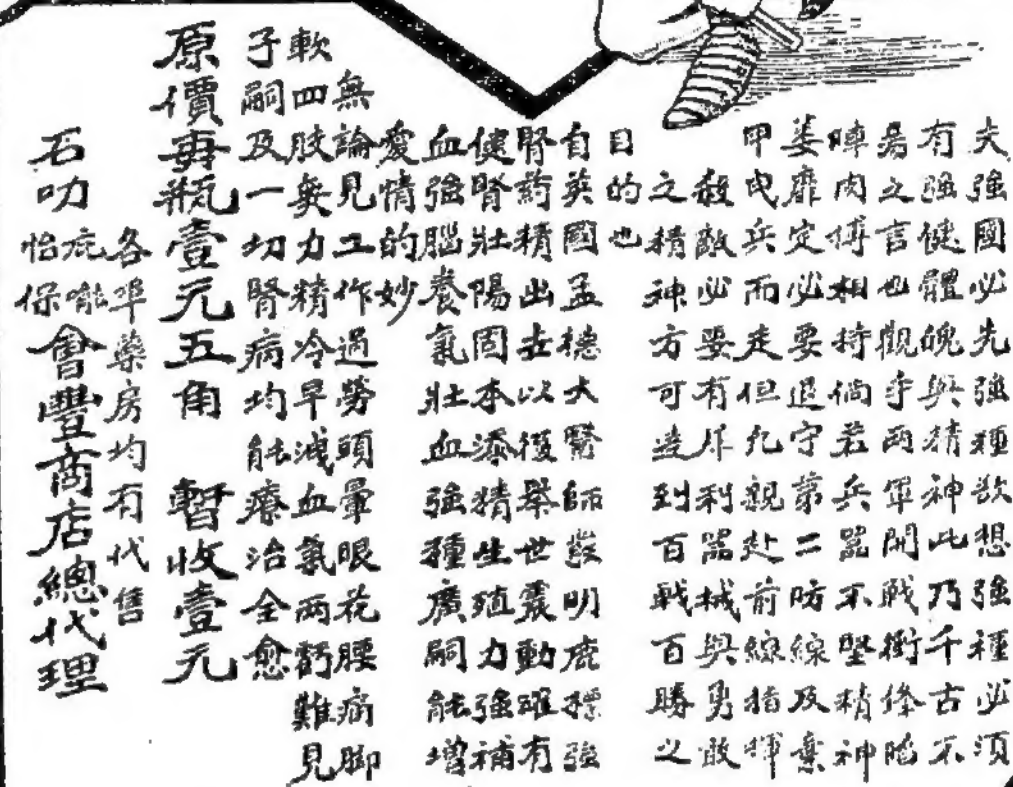 夫強國必先強種欲想強種必須
有強健體魄與精神此乃千古不
易之言也觀乎兩軍開戰衝鋒陷
陣肉博相持倘若兵器不堅精神
萎靡定必要退守第二防線及棄
甲曳兵而走但凡親赴前線指揮
殺敵必要有犀利器械與勇敢
之精神方可造到百戰百勝之
目的也
自英國孟德大醫師發明鹿標強
腎葯精出世以後舉世震動確有
健腎壯陽固本添精生殖力強補
血強腦養氣壯血強種廣嗣能增
愛情的妙
無論見工作過勞頭暈眼花腰痛脚
軟四肢無力精冷早洩血氣兩虧難見
子嗣及一切腎病均能療治全愈
原價每瓶壹元五角 暫收壹元
各埠藥房均有代售
石叻 庇能 怡保 會豐商店總代理